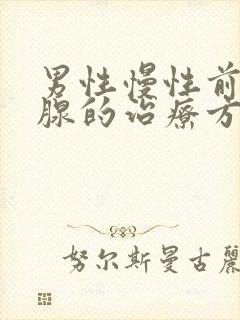 男性慢性前
腺的治疗方
努尔斯曼古丽